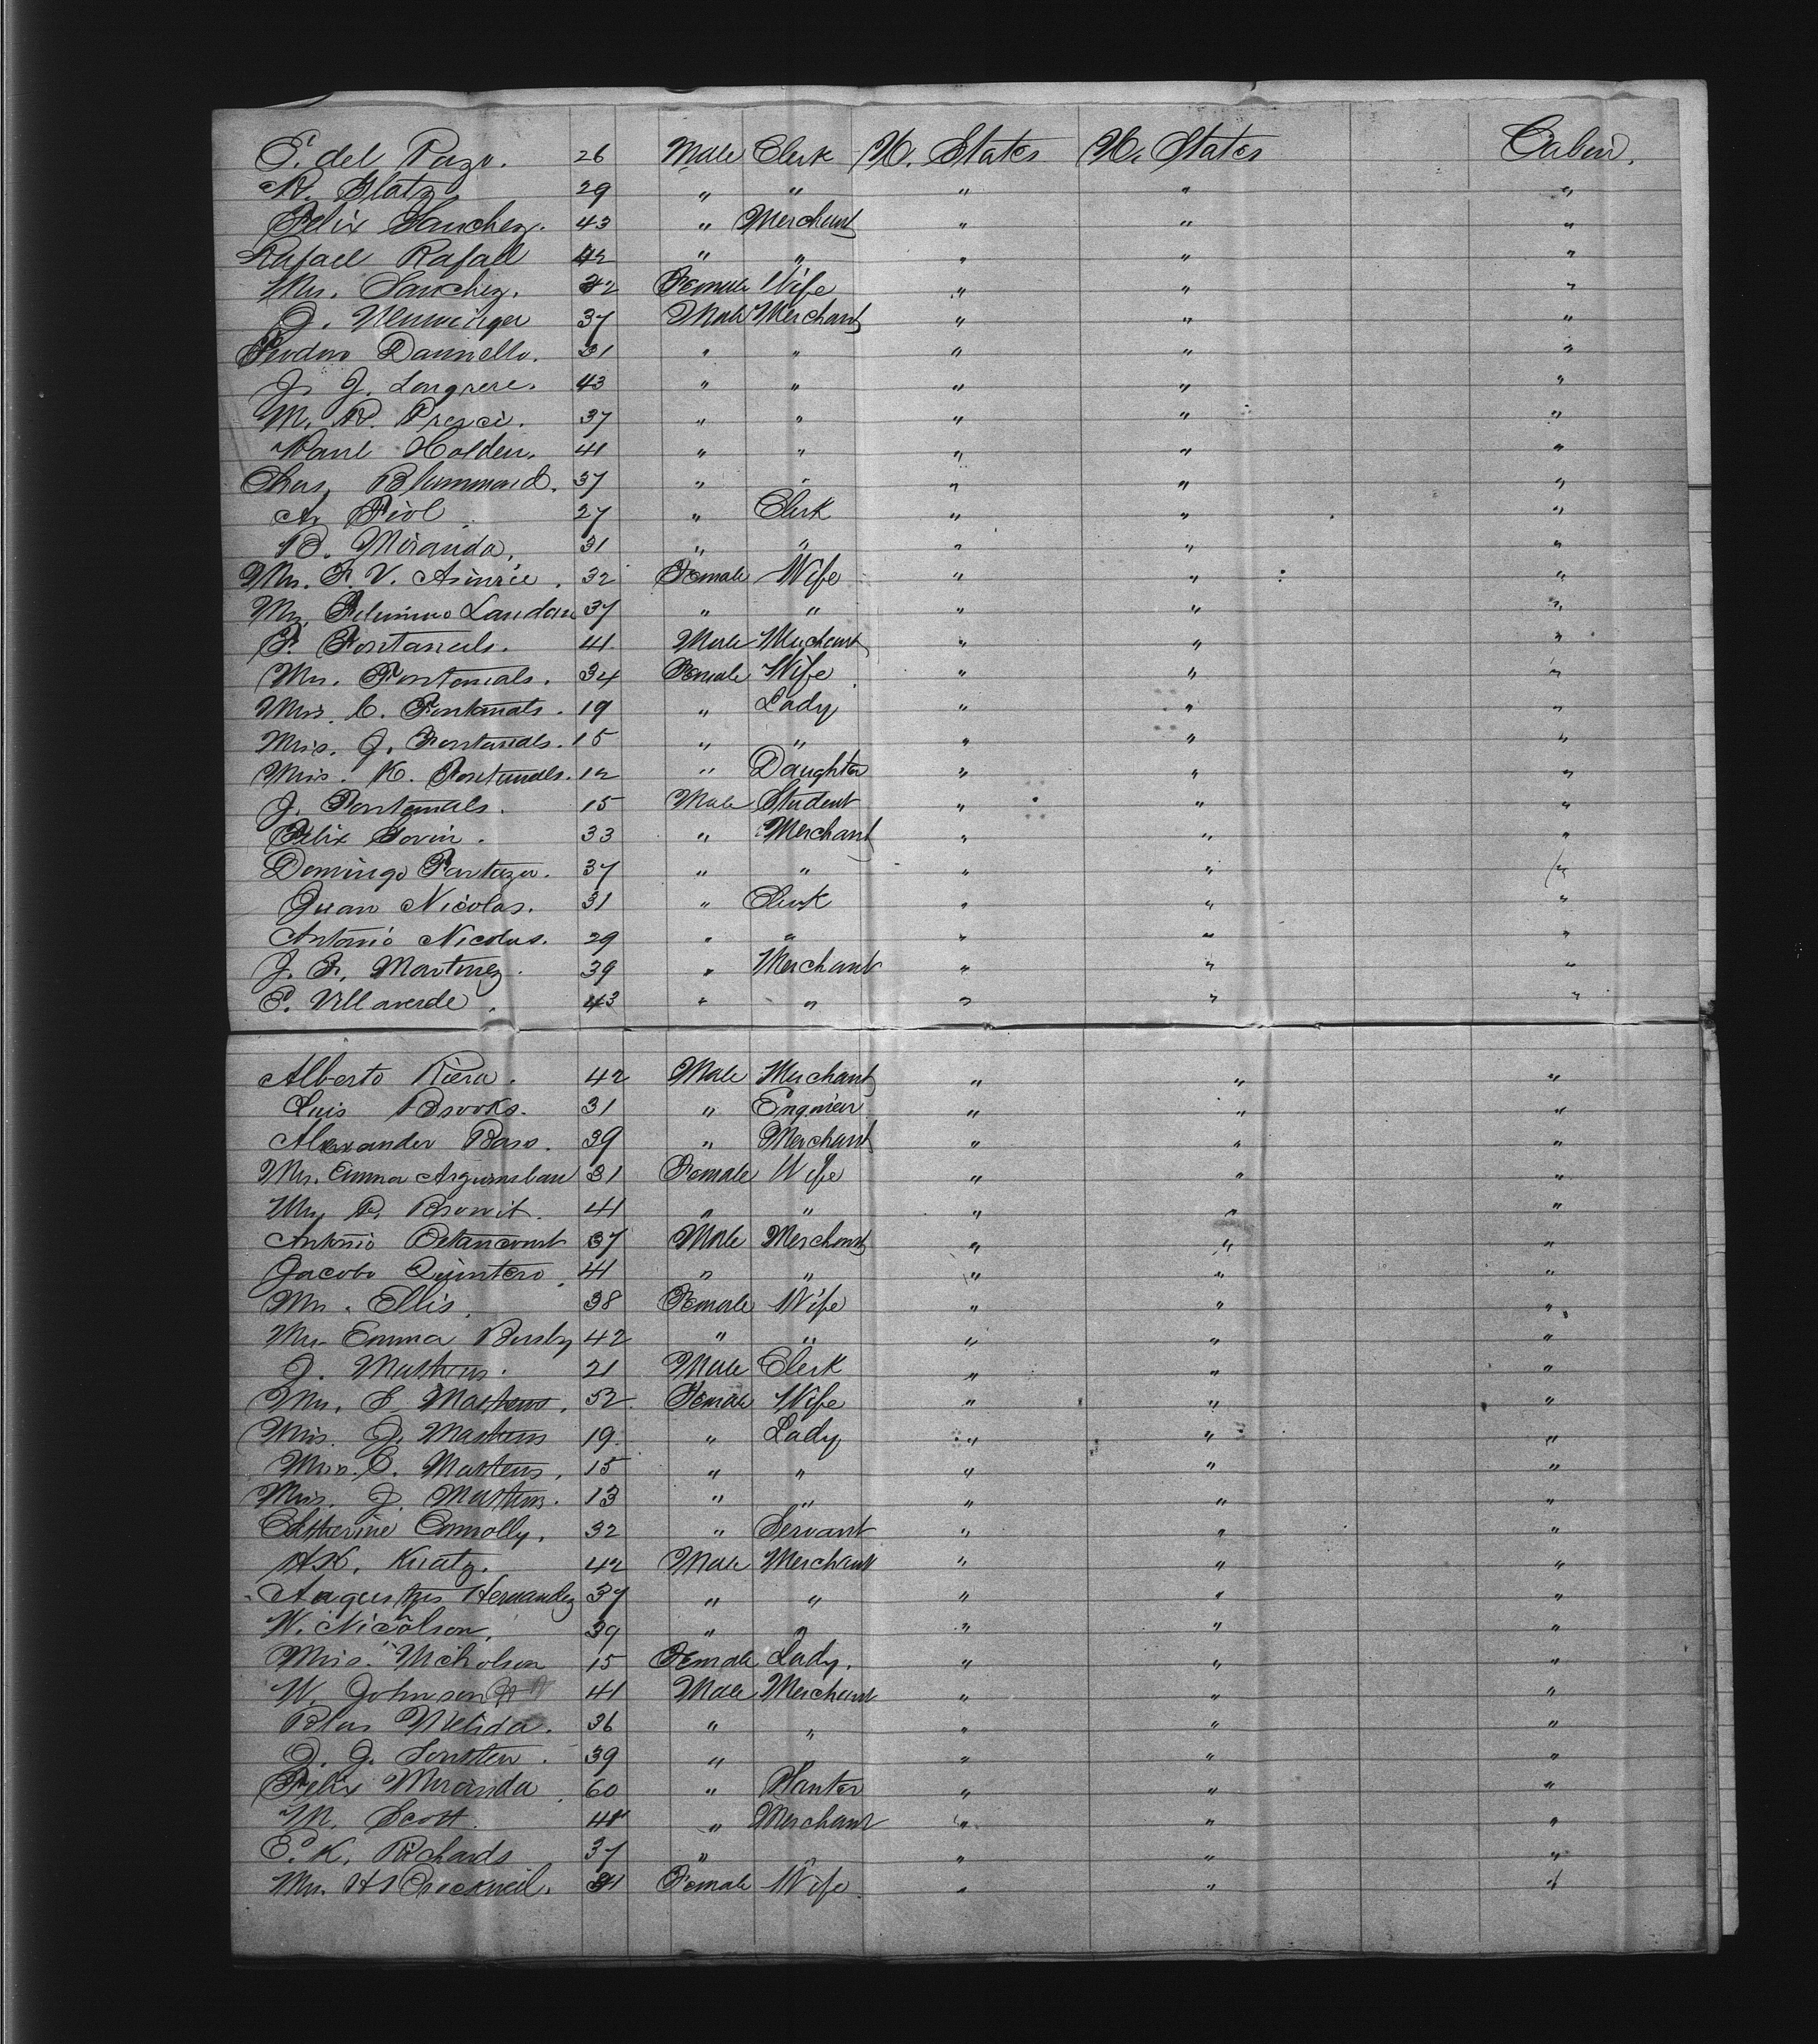 E. del Pazo. 26 Male Clerk U. States U. States Cabin.
R. Glatz 29 " " " " "
Felix Sanchez. 43 " Merchant " " "
Rafael Rafael 42 " " " " "
Mrs. Sanchez. 42 Female Wife " " "
J. 37 Male Merchant " " "
31 " " " " "
J. J. 43 " " " " "
M. R. 37 " " " " "
Holden. 41 " " " " "
Chas. 37 " " " " "
A. Fiol 27 " Clerk " " "
B. Miranda. 31 " " " " "
Mrs. F. V. 32 Female Wife " " "
Landau 37 " " " " "
F. Fontanals. 41 Male Merchant " " "
Mrs. Fontanals. 34 Female Wife " " "
Miss. C. Fontanals. 19 " Lady " " "
Miss. J. Fontanals. 15 " " " " "
Miss. K. Fontanals. 12 " Daughter " " "
J. Fontanals. 15 Male Student " " "
Felix Govin. 33 " Merchant " " "
Domingo 37 " " " " "
Juan Nicolas. 31 " Clerk " " "
Antonio Nicolas. 29 " " " " "
J. F. Martinez. 39 " Merchant " " "
E. Villaverde. 43 " " " " "
Alberto Riera. 42 Male Merchant " " "
Luis Brooks. 31 " Engineir " " "
Alexander Baso. 39 " Merchant " " "
Mrs. Emma 31 Female Wife " " "
41 " " " " "
Antonio Betancourt 37 Male Merchant " " "
Jacobo Quintero. 41 " " " " "
Mrs. Ellis. 38 Female Wife " " "
Mrs. Emma 42 " " " " "
J. Mathews. 21 Male Clerk " " "
Mrs. S. Mathews. 52 Female Wife " " "
Miss. J. Mathews 19 " Lady " " "
Miss. C. Mathews. 15 " " " " "
Miss. J. Mathews. 13 " " " " "
Catherine Connolly. 32 " Servant " " "
Kuatz. 42 Male Merchant " " "
Hernandez 37 " " " " "
W. Nicolson. 39 " " " " "
Miss. Nicholson 15 Female Lady. " " "
W. Johnson 41 Male Merchant " " "
Blas Melida. 36 " " " " "
J. J. 39 " " " " "
Felix Miranda. 60 " Planter " " "
M. Scott. 41 " Merchant " " "
E. K. Richards 37 " " " " "
Mrs. 31 Female Wife " " "